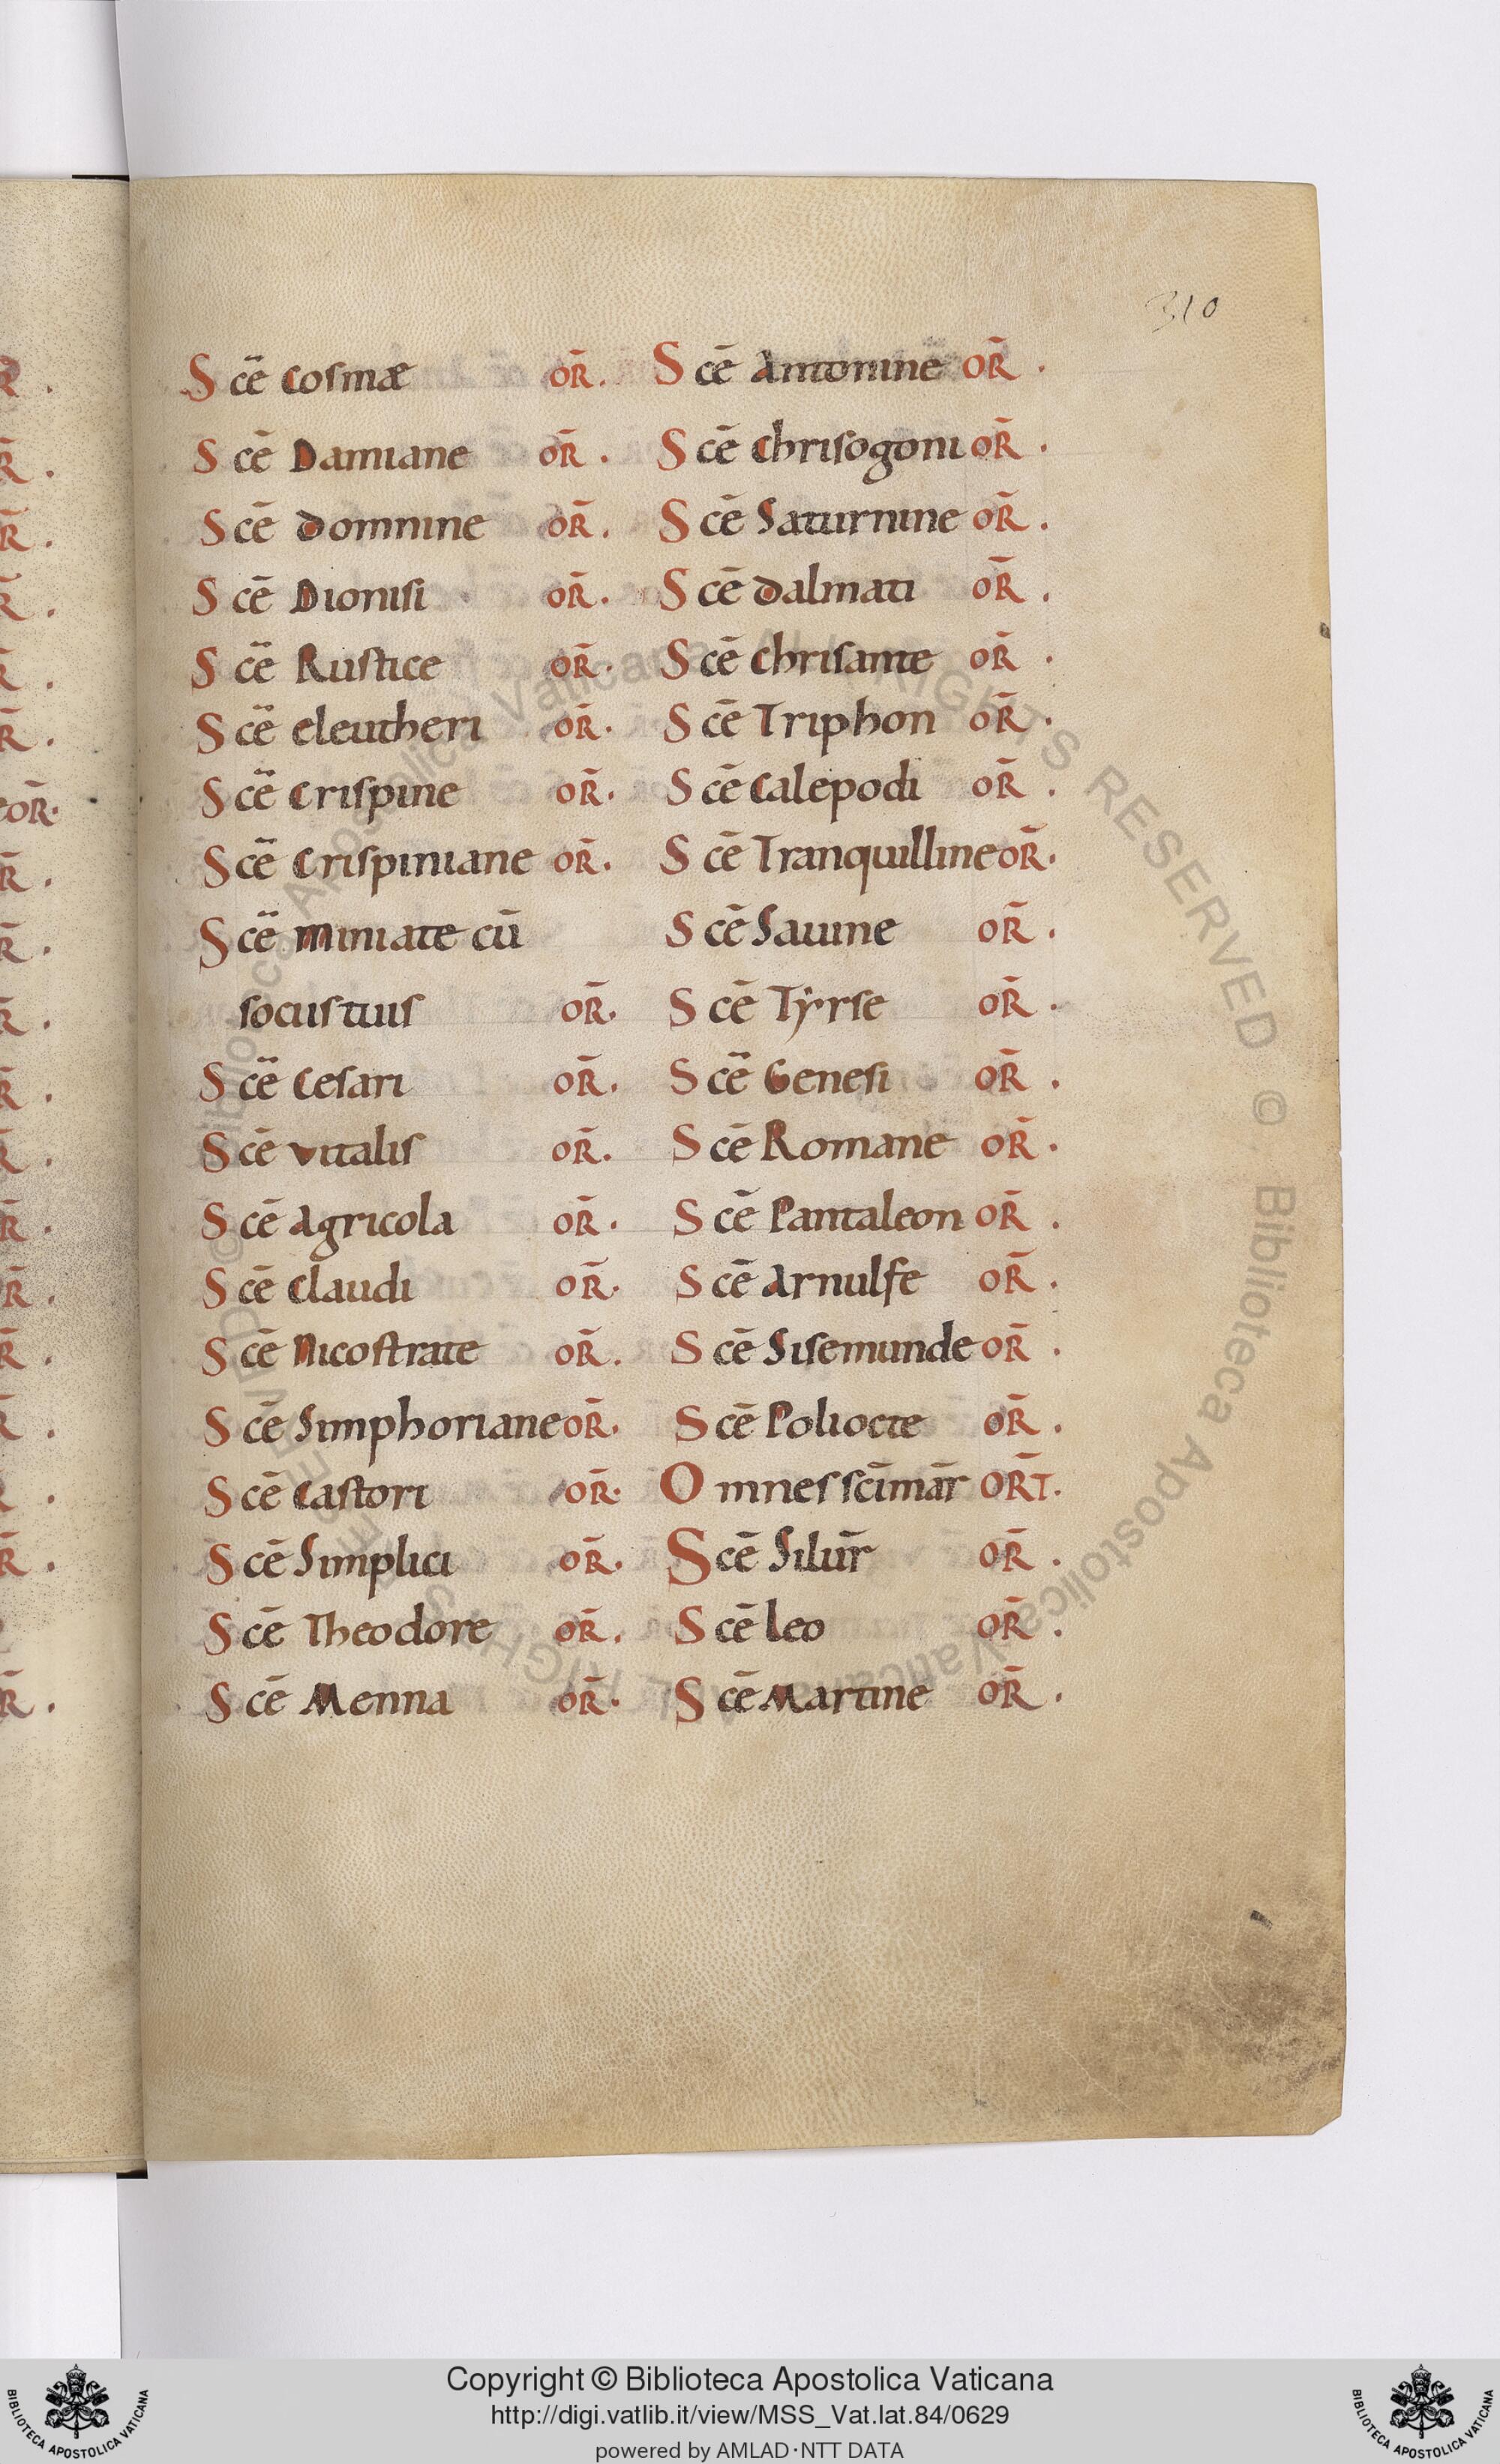 310
Scē Cosmæ OR̄.
Scē Damiane OR̄.
Scē Domnine OR̄.
Scē Dionisi OR̄.
Scē Rustice OR̄.
Scē eleutheri OR̄.
Scē Crispine OR̄.
Scē Crispiniane OR̄.
Scē miniate cū
sociis tuis OR̄.
Scē Cesari OR̄.
Scē vitalis OR̄.
Scē Agricola OR̄.
Scē Claudi OR̄.
Scē Nicostrate OR̄.
Scē Simphoriane OR̄.
Scē Castori OR̄.
Scē Simplici OR̄.
Scē Theodore OR̄.
Scē Menna OR̄.
Scē Antonine OR̄.
Scē Chrisogoni OR̄.
Scē Saturnine OR̄.
Scē dalmati OR̄.
Scē Chrisante OR̄.
Scē Triphon OR̄.
Scē Calepodi OR̄.
Scē Tranquilline OR̄.
Scē Sauine OR̄.
Scē Tyrse OR̄.
Scē Genesi OR̄.
Scē Romane OR̄.
Scē Pantaleon OR̄.
Scē Arnulfe OR̄.
Scē Sisemunde OR̄.
Scē Poliocte OR̄.
Omnes scī mār ORT̄.
Scē Silur̄ OR̄.
Scē leo OR̄.
Scē Martine OR̄.
© Biblioteca Apostolica Vaticana ALL RIGHTS RESERVED © Biblioteca Apostolica Vaticana ALL RIGHTS RESERVED
Copyright © Biblioteca Apostolica Vaticana
http://digi.vatlib.it/view/MSS_Vat.lat.84/0629
powered by AMLAD·NTT DATA
BIBLIOTECA APOSTOLICA VATICANA
BIBLIOTECA APOSTOLICA VATICANA